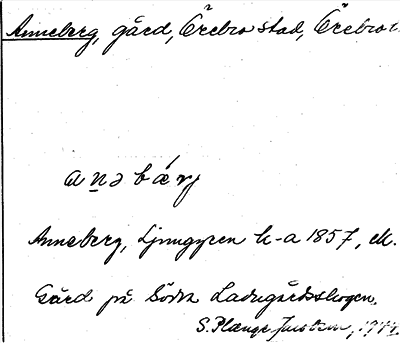 Anneberg, gård, Örebro stad, Örebro l.
anəbærj
Anneberg, Ljunggren h-a 1857, ek.
Gård på Södra Ladugårdsskogen.
S. Plange Jacobson, 1944.